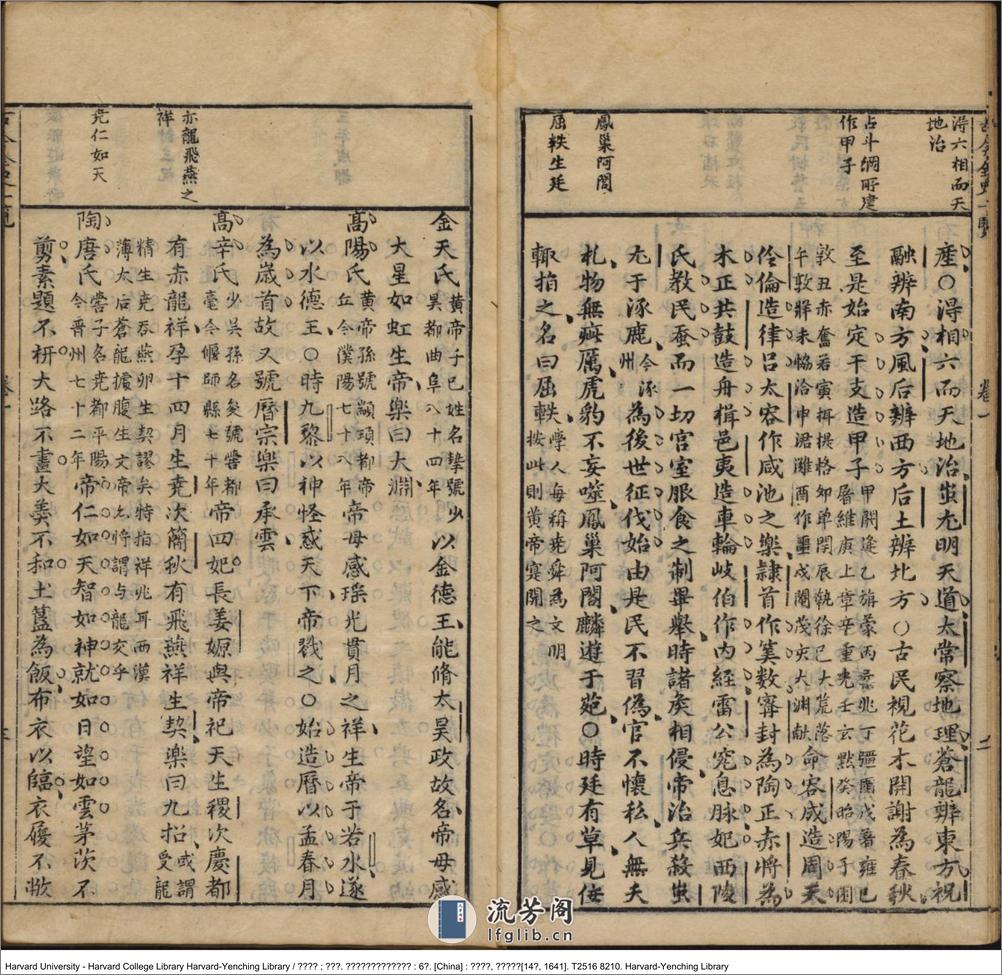 得六相而天
地治
占斗綱所建
作甲子
鳳巢阿閣
屈軼生廷
産○得相六而天地治蚩尤明天道太常察地理蒼龍辨東方祝
融辨南方風后辨西方后土辨北方○古民視花木開謝為春秋
至是始定干支造甲子甲閼逢乙旃蒙丙柔兆丁疆圉戊著雍己屠維庚上章辛重光壬玄黓癸昭陽子困
敦丑赤奮若寅攝提格卯單閼辰執徐巳大荒落午敦牂未協洽申涒灘酉作噩戌閹茂亥大淵献命容成造周天
伶倫造律呂太容作咸池之樂隷首作筭数甯封為陶正赤將為
木正共鼓造舟楫邑夷造車輪岐伯作内經雷公究息脉妃西陵
氏教民蚕而一切宫室服食之制畢舉時諸矦相侵帝治兵殺蚩
尤于涿鹿今涿州為後世征伐始由是民不習偽官不懷私人無夭
札物無疵厲虎豹不妄噬鳳巢阿閣麟遊于苑○時廷有草見佞
輙指之名曰屈軼學人每稱堯舜為文明按此則黄帝寔開之
亦龍飛燕之
祥
堯仁如天
金天氏黄帝子已姓名摯號少昊都曲阜八十四年以金德王能脩太昊政故名帝母感
大星如虹生帝樂曰大淵
高陽氏黄帝孫號顓頊都帝丘今濮陽七十八年帝母感瑶光貫月之祥生帝于若水遂
以水德王○時九黎以神怪惑天下帝戮之○始造曆以孟春月
為歲首故又號曆宗樂曰承雲
高辛氏少昊孫名夋號嚳都亳今偃師縣七十年帝四妃長姜嫄與帝祀天生稷次慶都
有赤龍祥孕十四月生堯次簡狄有飛燕祥生契樂曰九招或謂受龍
精生堯吞燕卵生契謬矣特指祥兆耳西漢薄太后蒼龍據腹生文帝亦將謂与龍交乎
陶唐氏嚳子名堯都平陽今晋州七十二年帝仁如天智如神就如日望如雲茅茨不
剪素題不枅大路不畫大羹不和土簋為飯布衣以臨衣履不敝
流芳阁
lfglib.cn
Harvard University - Harvard College Library Harvard-Yenching Library / ???? ; ???. ????????????? : 6?. [China] : ????, ?????[14?, 1641]. T2516 8210. Harvard-Yenching Library